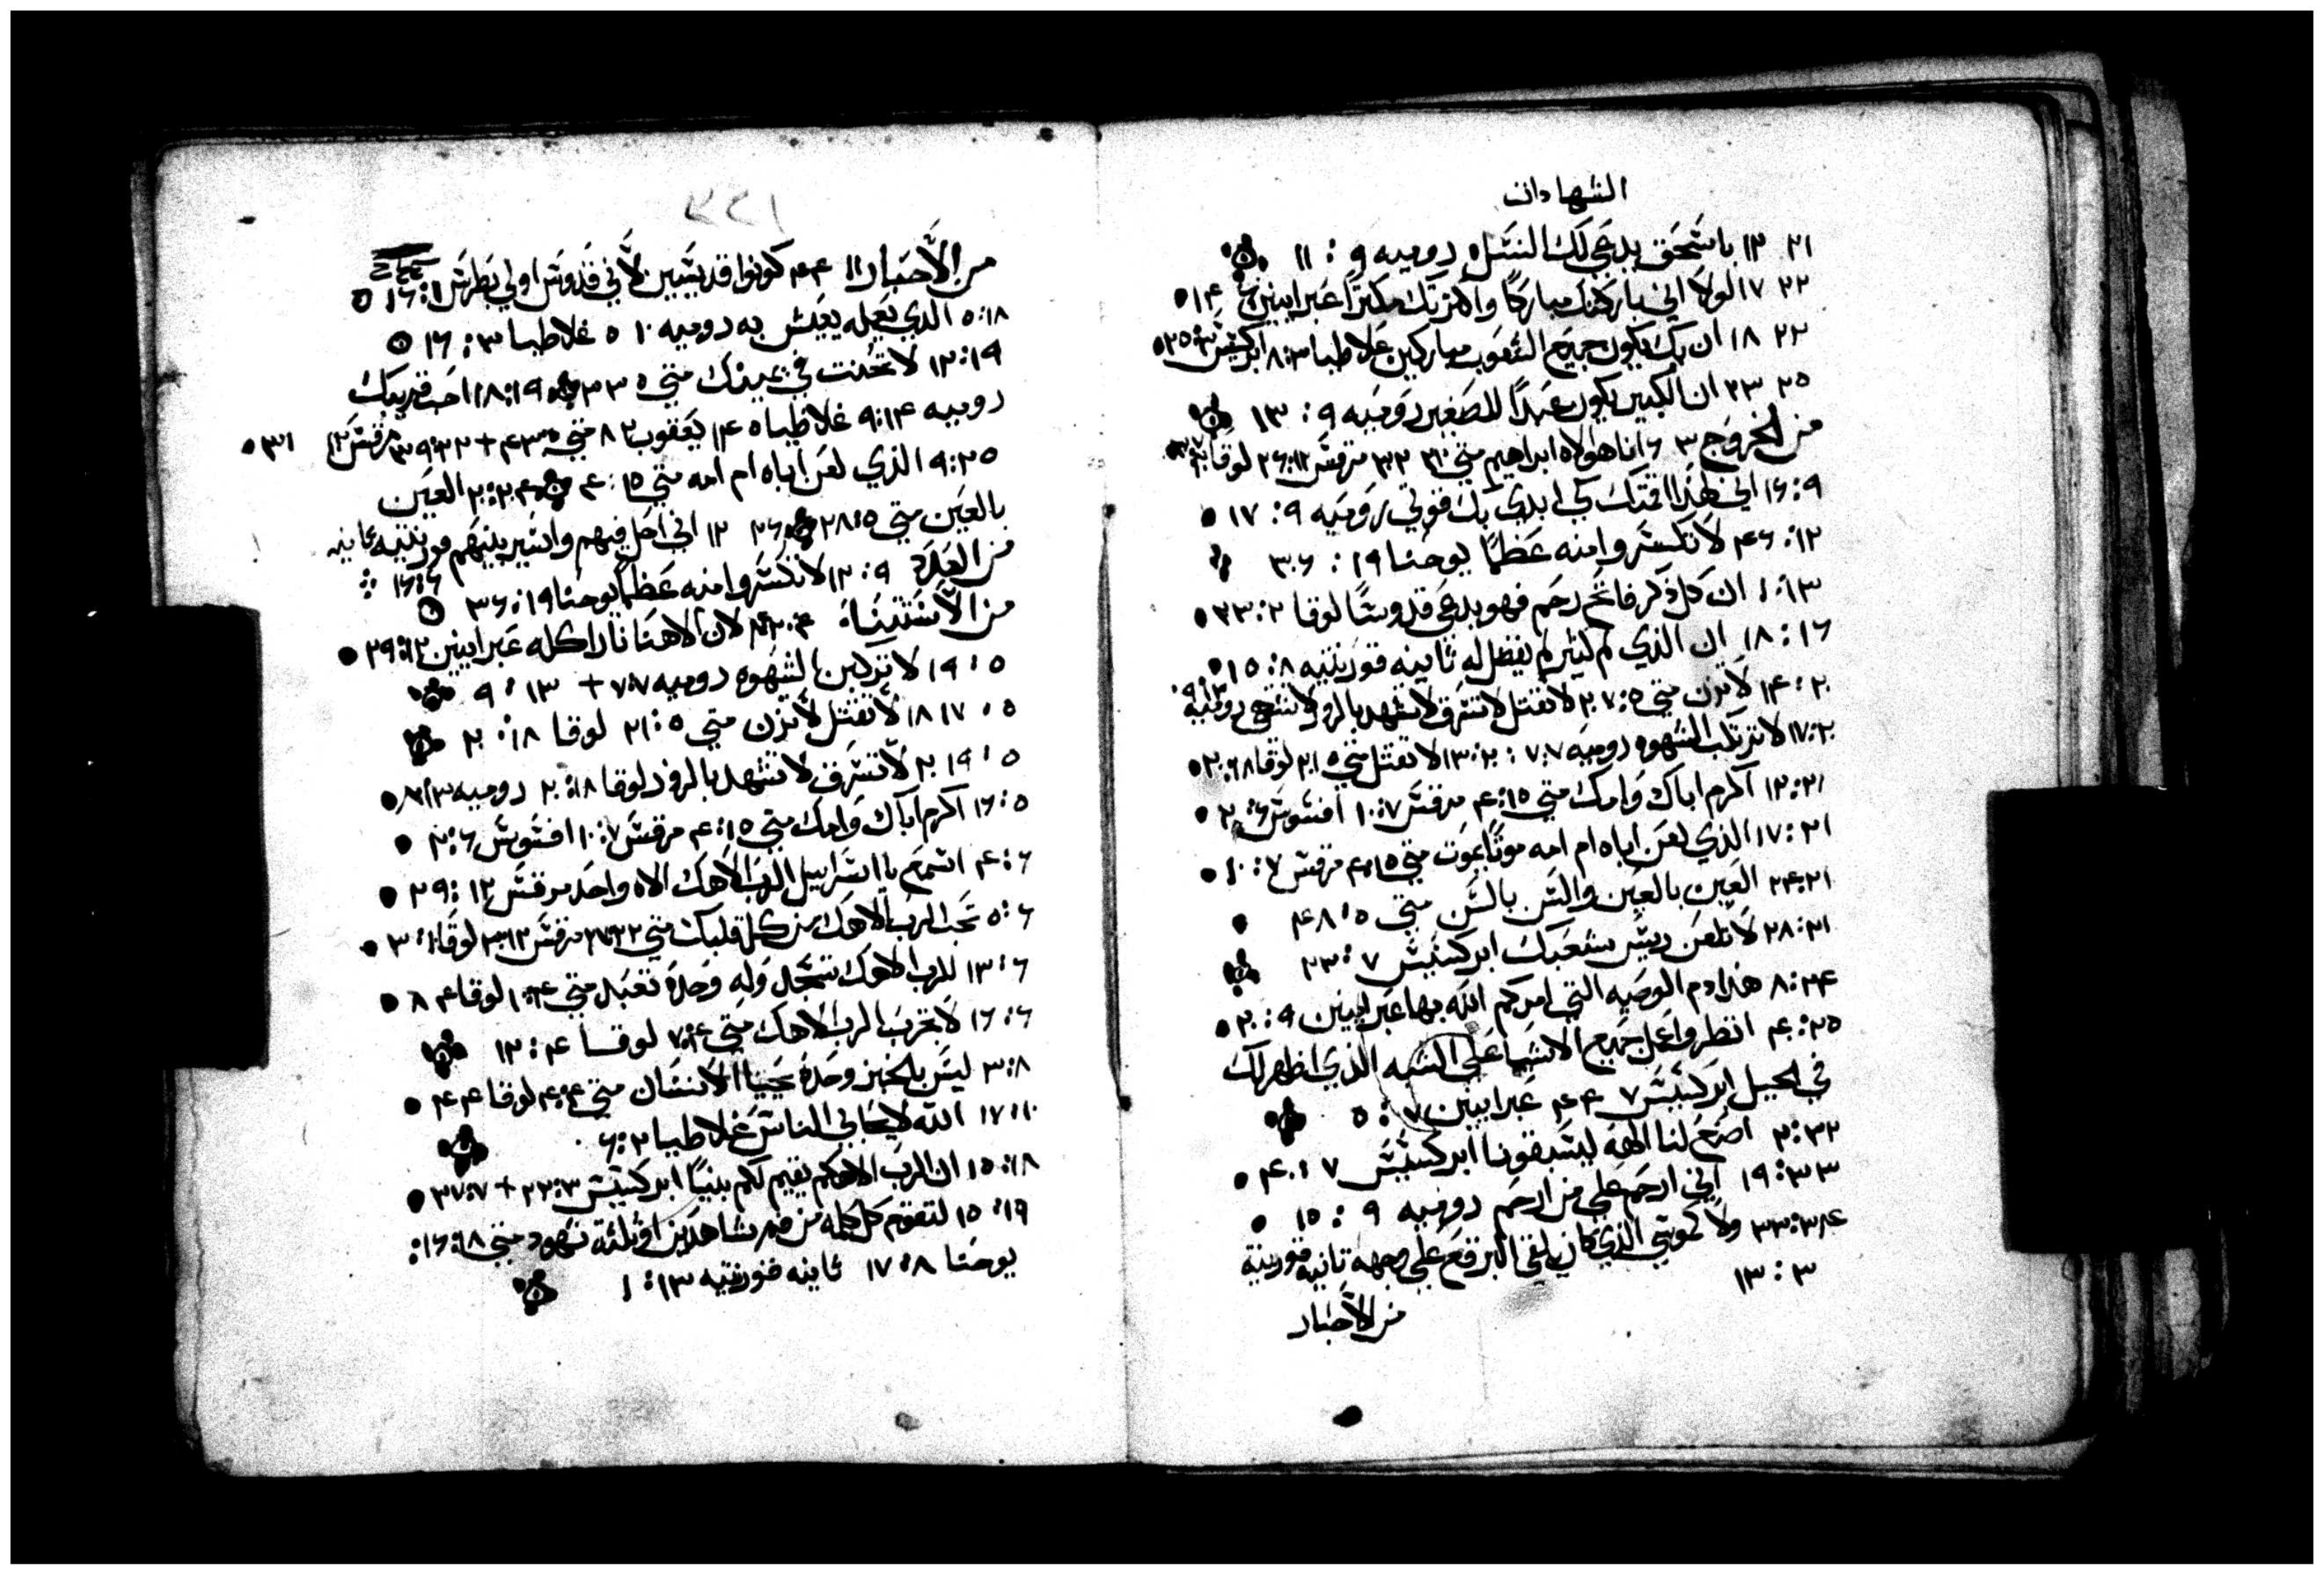 الشهادات
٢١ ١٢ باسحق يدعي لك النسل روميه ٩ : ١١
٢٢ ١٧ لولا اني باركتك مباركًا واكثرتك مكثرًا عبرانيين ٦ ١٤
٢٢ ١٨ ان بك يكون جميع الشعوب مباركين غلاطيا ٣:٨ ابركسيس ٣:٢٥
٢٥ ٢٣ ان الكبير يكون عبدًا للصغير روميه ٩ : ١٣
من الخروج ٣ ٦ انا هو الاه ابراهيم متي ٣٢ مرقس ١٢:٢٦ لوقا
٩:١٦ اني لهذا اقمتك كي ابدي بك قوتي روميه ٩ : ١٧
١٢:٤٦ لا تكسروا منه عظمًا يوحنا ١٩ : ٣٦
١٣:١ ان كل ذكر فاتح رحم فهو يدعي قدوسًا لوقا ٢:٢٣
١٦ : ١٨ ان الذي لم ليثر لم يفضل له ثانيه قورنتيه ٨:١٥
٢٠:١٤ لا تزن متي ٥:٢٧ لا تقتل لا تسرق لا تشهد بالزور لا تشتهي روميه ١٣:٩
٢٠:١٧ لا ترتكب الشهوه روميه ٧:٧ : ٢٠:١٣ لا تقتل متي ٥ ٢١ لوقا ١٨:٢٠
٢١:١٢ اكرم اباك وامك متي ١٥:٤ مرقس ٧:١٠ افسوس ٦:٢
٢١:١٧ الذي لعن اباه ام امه موتًا يموت متي ١٥:٤ مرقس ٧ : ١٠
٢١:٢٤ العين بالعين والسن بالسن متي ٥:٤٨
٢١:٢٨ لا تلعن ريس شعبك ابركسيس ٧ : ٢٣
٢٤:٨ هذا دم الوصيه التي امركم الله بها عبرانيين ٩ : ٢٠
٢٥:٤٠ انظر واعمل جميع الاشيا علي الشبه الذي اظهر لك
في الجبل ابركسيس ٧ ٤٤ عبرانيين ٧ : ٥
٣٢:٢ اصنع لنا الهه ليسبقونا ابركسيس ٧ : ٤٠
٣٣:١٩ اني ارحم علي من ارحم روميه ٩ : ١٥
٣٤:٣٣ ولا كموسي الذي كان يلقي البرقع علي وجهه ثانيه قورنتيه
٣ : ١٣
من الاحبار
٣٢١
من الاحبار ١١ ٤٤ كونوا قديسين لاني قدوس اولي بطرس ١:١٦
١٨:٥ الذي يعمله يعيش به روميه ١٠ ٥ غلاطيا ٣ : ١٢
١٩:١٢ لا تحنث في يمينك متي ٥ ٣٣ ١٩:١٨ احب قريبك
روميه ١٤:٩ غلاطيا ٥ ١٤ يعقوب ٢ ٨ متي ٥:٤٣ + ٢٢:٣٩ مرقس ١٢ ٣١
٢٥:٩ الذي لعن اباه ام امه متي ١٥:٤ ٢٤:٢٠ العين
بالعين متي ٥:٣٨ ٢٦ ١٢ اني احل فيهم واسير بينهم قورنتيه ثانيه
٦:١٦
من العدد ٩ : ١٢ لا تكسروا منه عظمًا يوحنا ١٩:٣٦
من الاستثناء ٤:٢٤ لان الاهنا نارًا اكله عبرانيين ١٢:٢٩
٥ : ١٩ لا ترتكبن الشهوه روميه ٧:٧ + ١٣ : ٩
٥ : ١٧ ١٨ لا تقتل لا تزن متي ٥ : ٢١ لوقا ١٨ : ٢٠
٥ : ١٩ ٢٠ لا تسرق لا تشهد بالزور لوقا ١٨:٢٠ روميه ١٣:٩
٥:١٦ اكرم اباك وامك متي ١٥:٤ مرقس ٧:١٠ افسوس ٦:٢
٦:٤ اسمع يا اسرائيل الرب الاهك الاه واحد مرقس ١٢ : ٢٩
٦:٥ تحب الرب الاهك من كل قلبك متي ٢٢:٣٧ مرقس ١٢:٣٠ لوقا
٦:١٣ للرب الاهك تسجد وله وحده تعبد متي ٤:١٠ لوقا ٤ ٨
٦:١٦ لا تجرب الرب الاهك متي ٤:٧ لوقا ٤ : ١٢
٨:٣ ليس بالخبز وحده يحيا الانسان متي ٤:٤ لوقا ٤ ٤
١٠:١٧ الله لا يحابي الناس غلاطيا ٢:٦
١٨:١٥ ان الرب الاهكم يقيم لكم نبيًا ابركسيس ٣:٢٢ + ٧:٣٧
١٩:١٥ لتقوم كل كلمه من فم شاهدين او ثلثة شهود متي ١٨:١٦
يوحنا ٨:١٧ ثانيه قورنتيه ١٣ : ١